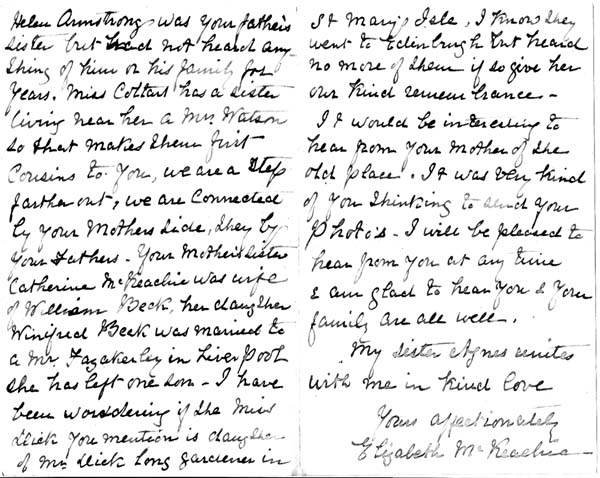 Helen Armstrong was your father's
sister but had not heard any-
thing of him or his family for
years. Miss Coltart has a sister
living near her a Mrs Watson
so that makes them first
Cousins to you, we are a step
farther out, we are connected
by your Mothers side, they by
your Fathers - Your Mother's sister
Catherine McKeachie was wife
of William Beck, her daughter
Winifred Beck was married to
a Mr. Fazakerley in Liverpool
she has left one son - I have
been wondering if the Miss
Dick you mention is daughter
of Mr Dick long gardener in
St Mary's Isle, I know they
went to Edinburgh but heard
no more of them if so give her
our kind remembrance -
It would be interesting to
hear from your Mother of the
old place. It was very kind
of you thinking to send your
Photo's - I will be pleased to
hear from you at any time
& am glad to hear you & your
family are all well.
My sister Agnes unites
with me in kind love
Yours affectionately
Elizabeth McKeachie